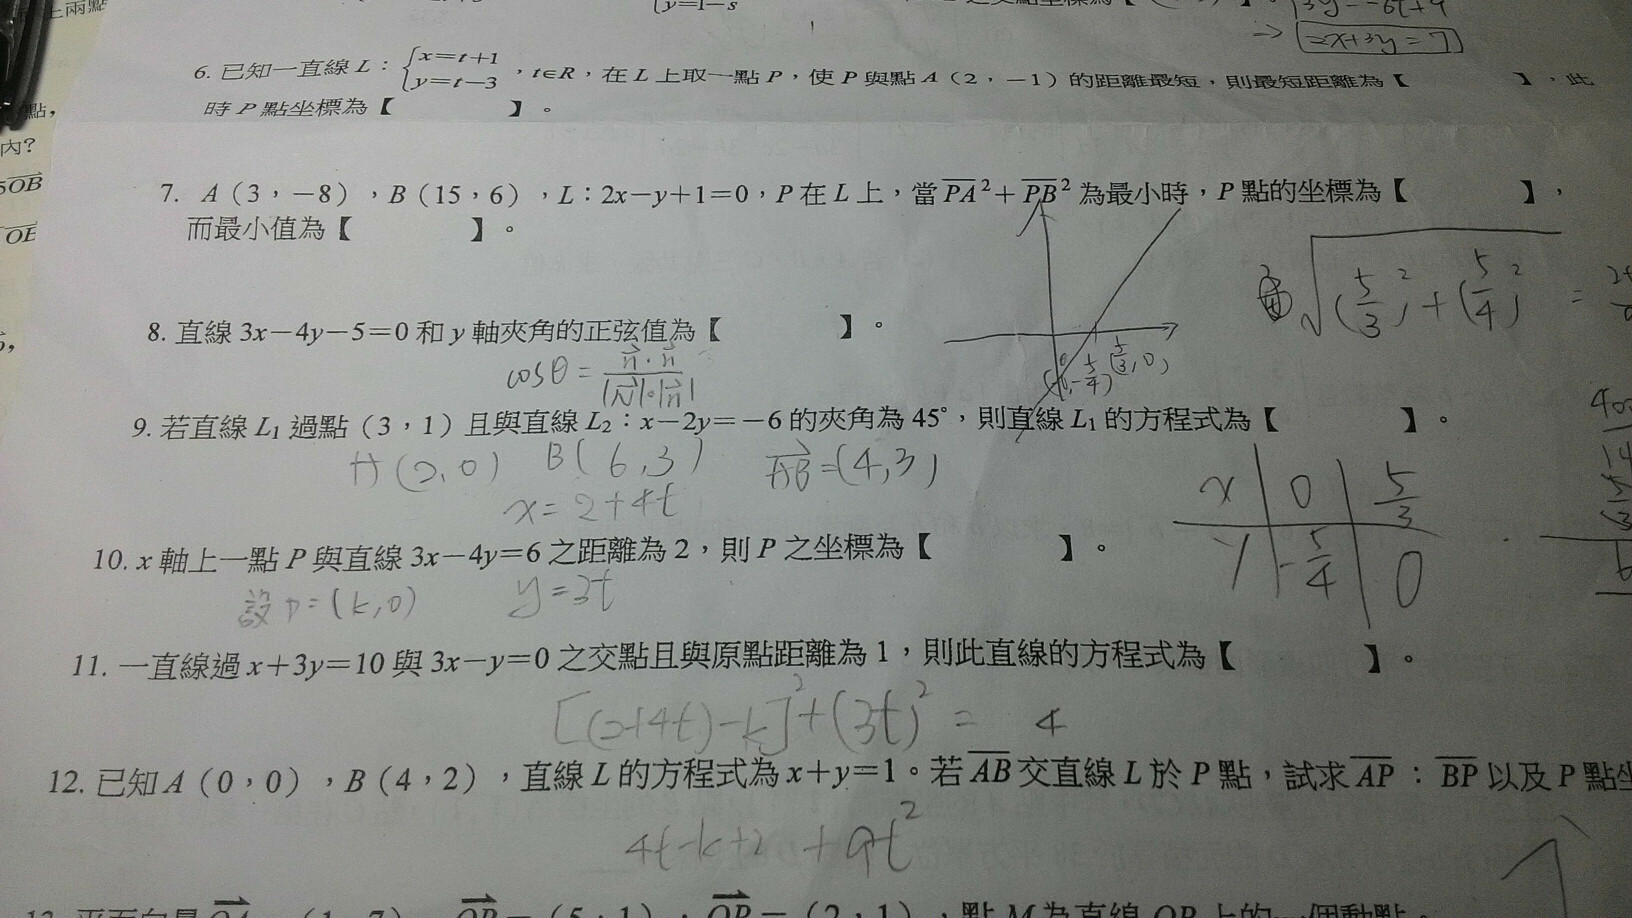 上兩點
y=1-s
3y=-6t+9
⇒ 2x+3y=7
6. 已知一直線 L：{x=t+1
y=t-3，t∈R，在 L 上取一點 P，使 P 與點 A（2，-1）的距離最短，則最短距離為【 】，此
時 P 點坐標為【 】。
點，
內?
5OB
OE
7. A（3，-8），B（15，6），L：2x-y+1=0，P 在 L 上，當 PA²+PB² 為最小時，P 點的坐標為【 】，
而最小值為【 】。
√(5/3)²+(5/4)² =
8. 直線 3x-4y-5=0 和 y 軸夾角的正弦值為【 】。
cosθ = n·n/|N|·|n|
(0,-5/4) (5/3,0)
9. 若直線 L₁ 過點（3，1）且與直線 L₂：x-2y=-6 的夾角為 45°，則直線 L₁ 的方程式為【 】。
A(2,0) B(6,3) AB=(4,3)
x=2+4t
x | 0 | 5/3
y | -5/4 | 0
10. x 軸上一點 P 與直線 3x-4y=6 之距離為 2，則 P 之坐標為【 】。
設 P=(k,0) y=3t
11. 一直線過 x+3y=10 與 3x-y=0 之交點且與原點距離為 1，則此直線的方程式為【 】。
[(2+4t)-k]²+(3t)² = 4
12. 已知 A（0，0），B（4，2），直線 L 的方程式為 x+y=1。若 AB 交直線 L 於 P 點，試求 AP：BP 以及 P 點坐
4t-k+2 +9t²
13. 平面向量 OA=（1，7），OB=（5，1），OP=（2，1），點 M 為直線 OP 上的一個動點。